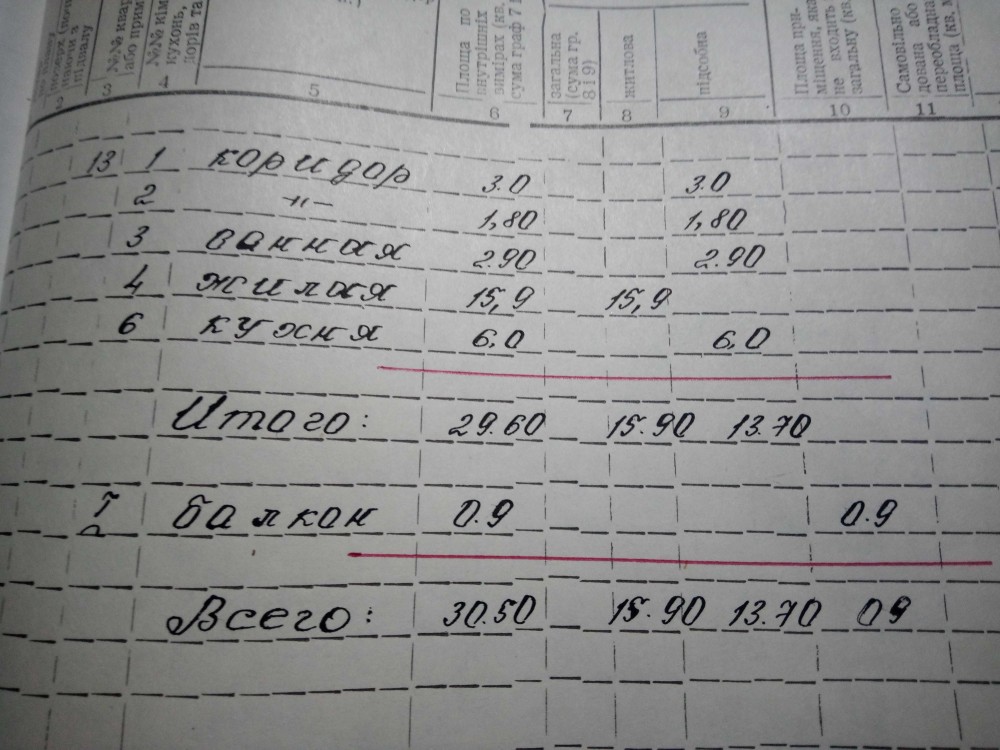 №№ квар
або прим
№№ кім
кухонь,
підвалу
Площа по
внутрішніх
вимірах (кв.
сума граф 7 і
загальна
(сума гр.
8 і 9)
житлова
підсобна
Площа при-
міщення, яка
не входить
загальну (кв.
Самовільно
дована або
переобладна
площа (кв. м
3 4 5 6 7 8 9 10 11
13 1 коридор 3.0 3.0
2 -"- 1,80 1,80
3 ванная 2.90 2.90
4 жилая 15,9 15,9
6 кухня 6.0 6,0
Итого: 29.60 15.90 13.70
балкон 0.9 0.9
Всего: 30.50 15.90 13.70 09